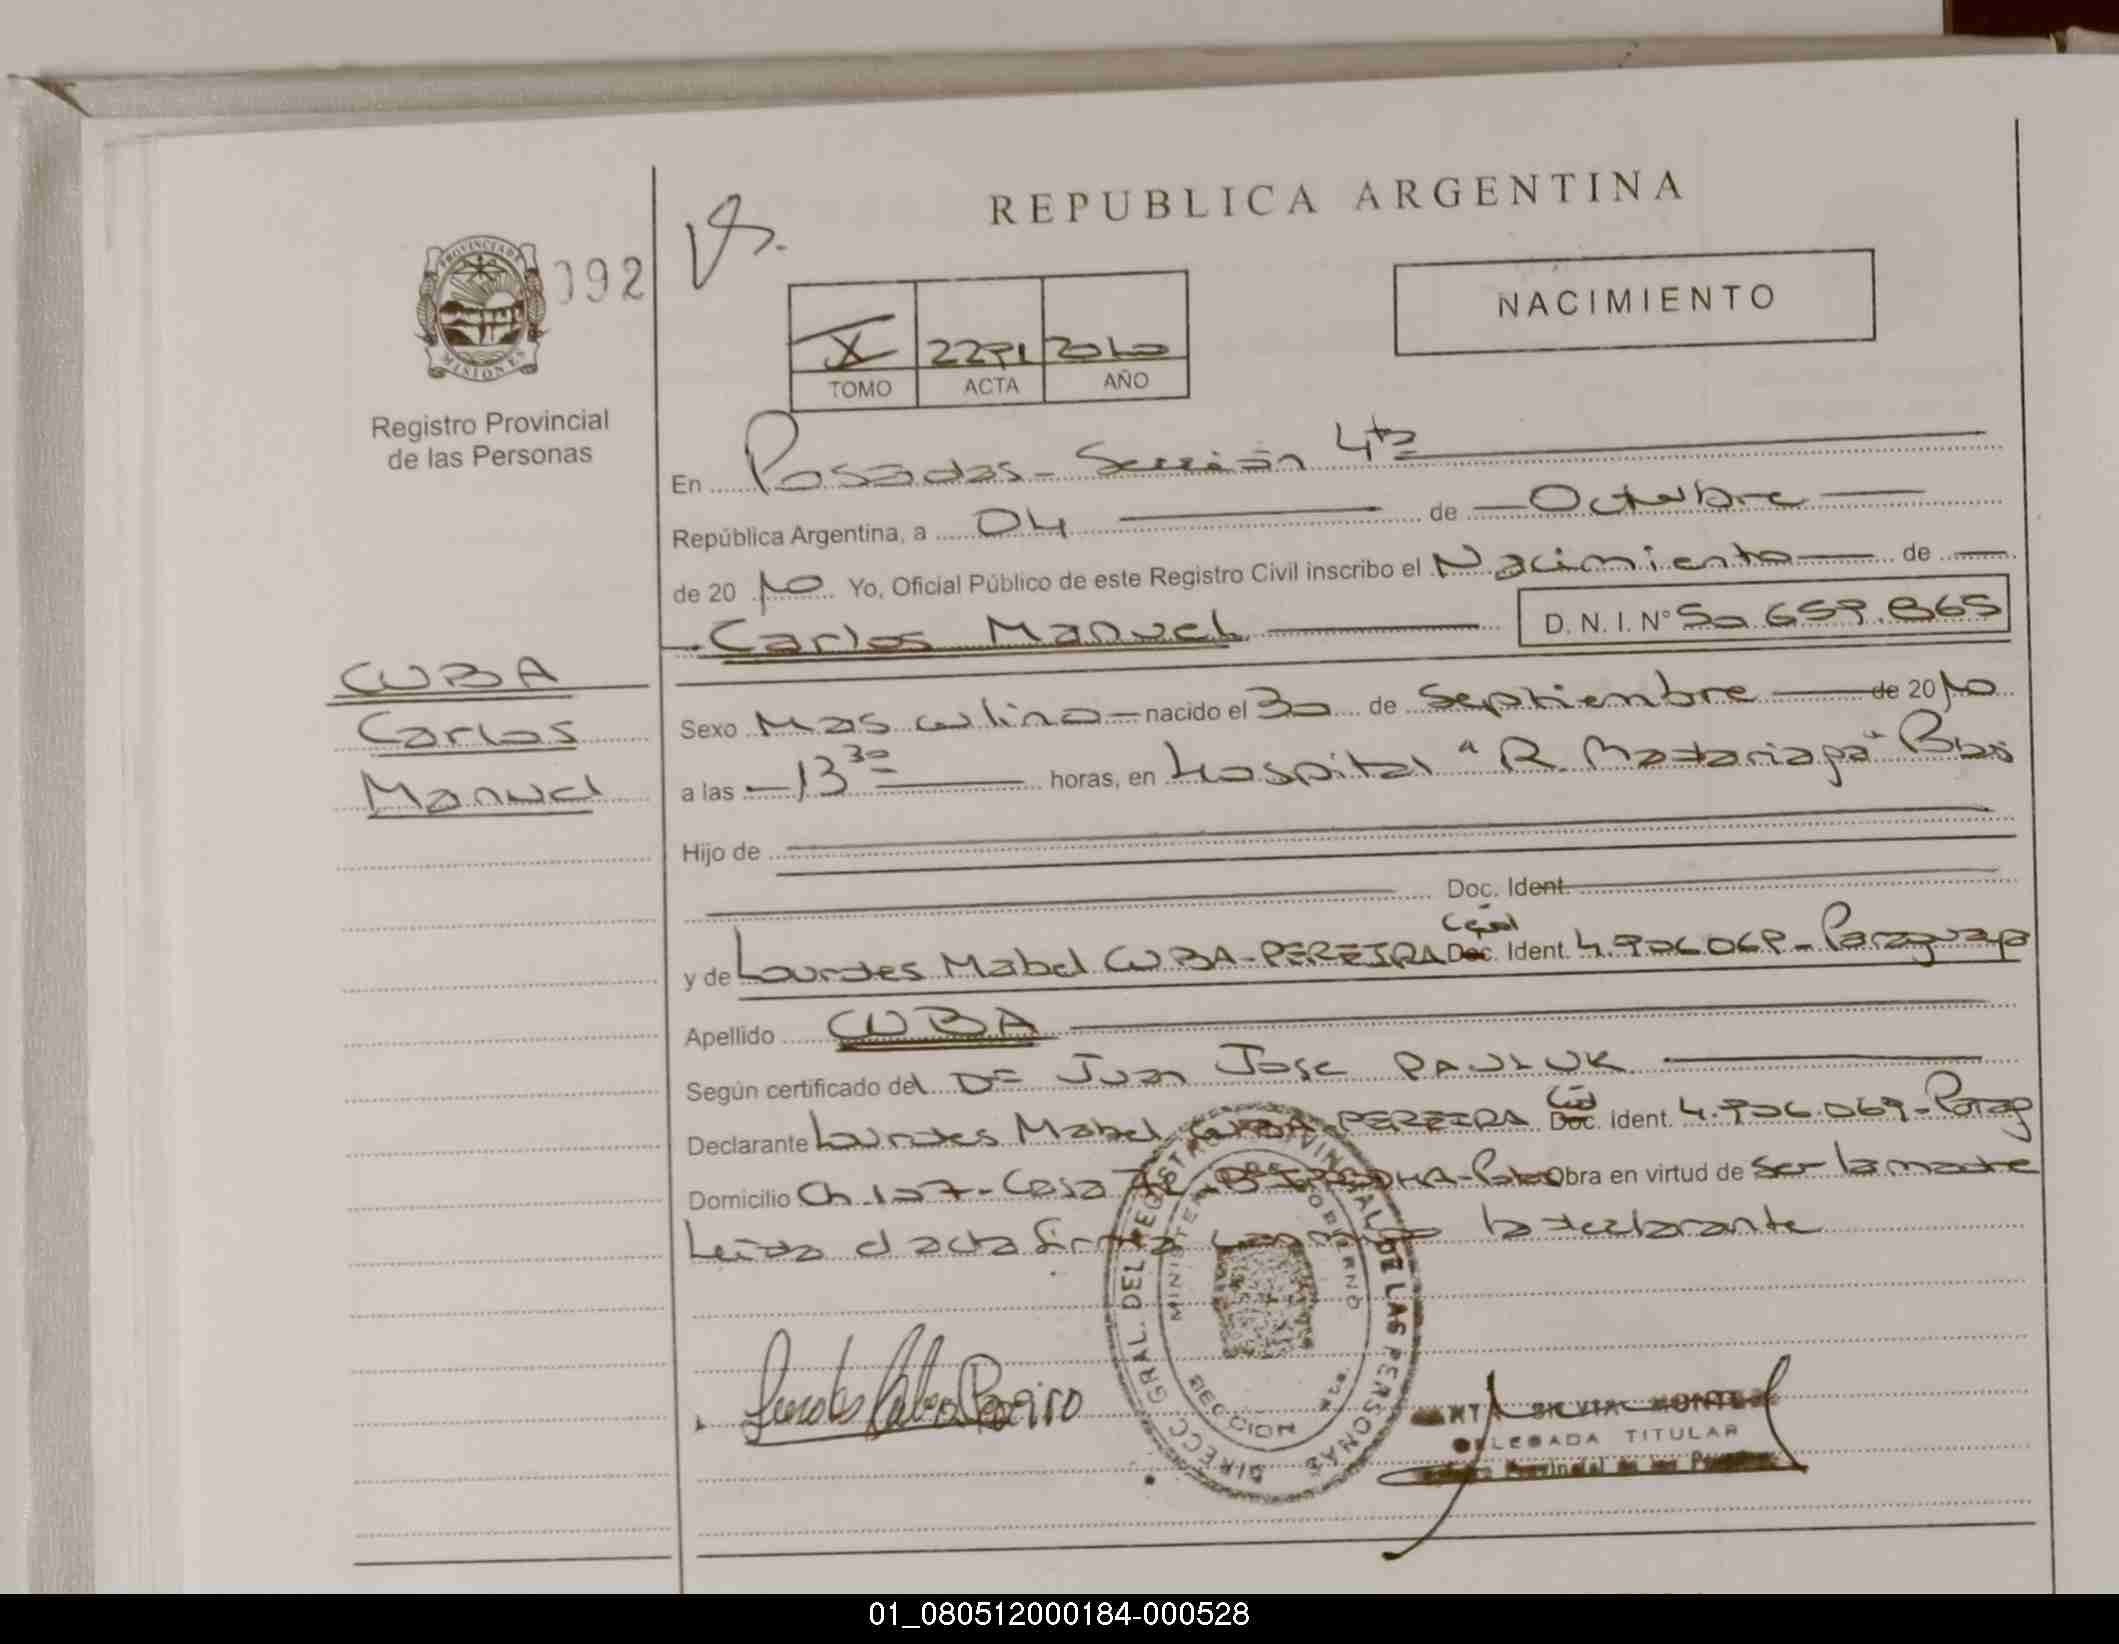 REPUBLICA ARGENTINA
PROVINCIA DE
MISIONES
092
NACIMIENTO
X 2291 2010
TOMO ACTA AÑO
Registro Provincial
de las Personas
En Posadas - Sección 4ta
República Argentina, a 04 de Octubre
de 2010 Yo, Oficial Público de este Registro Civil inscribo el Nacimiento de
Carlos Manuel D. N. I. N° 50.659.865
CUBA
Carlos
Manuel
Sexo Masculino - nacido el 30 de Septiembre de 2010
a las 13 30 horas, en Hospital "R. Madariaga" Pdas
Hijo de
Doc. Ident.
y de Lourdes Mabel CUBA - PEREIRA Céd Doc. Ident. 4.906.069 - Paraguaya
Apellido CUBA
Según certificado del Dr Juan José PAULUK
Declarante Lourdes Mabel CUBA PEREIRA Céd Doc. Ident. 4.906.069 - Parag
Domicilio Ch. 107 - Casa Obra en virtud de ser la madre
Leida el acta firma conmigo la declarante
DIRECC. GRAL. DEL REGISTRO PROVINCIAL DE LAS PERSONAS
MINISTERIO GOBIERNO
SECCION 4ta.
SILVIA
DELEGADA TITULAR
Provincial de las
01_080512000184-000528